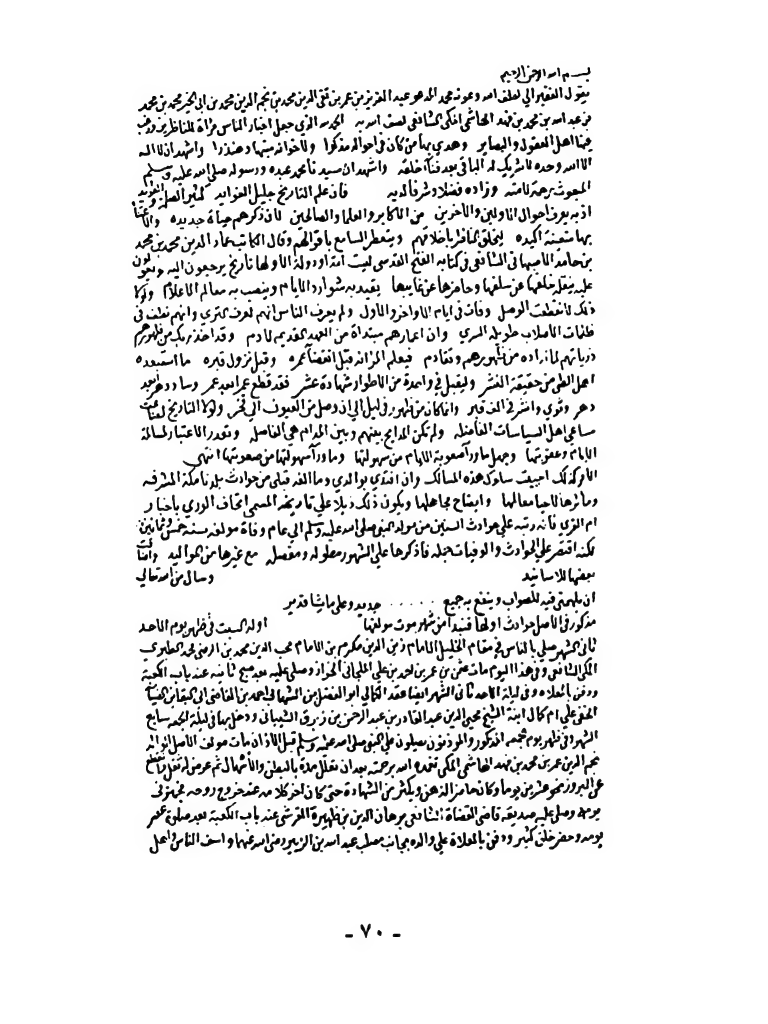 بسم الله الرحمن الرحيم
يقول الفقير الى لطف الله وعونه محمد المدعو عبد العزيز بن عمر بن تقى الدين محمد بن نجم الدين محمد بن ابى الخير محمد بن محمد
بن عبد الله بن محمد بن فهد الهاشمى المكى الشافعى لطف الله به الحمد لله الذي جعل اخبار الناس مرآة للناظرين
اهل العقول والبصاير وهدى بها من كان فى احواله مذكرا ولاخوانه منبها ومنذرا واشهد ان لا اله
الا الله وحده لا شريك له الباقى بعد فناء خلقه واشهد ان سيدنا محمد عبده ورسوله صلى الله عليه وسلم
المبعوث رحمة للامته وزاده فضلا وشرفا لديه فان علم التاريخ جليل الفوايد كثير الصلة
اذ به يعرف احوال الاولين والآخرين من الاكابر والعلما والصالحين لان ذكرهم حياة جديده
بها متعينة اكيده يتخلق الحاضر باخلاقهم ويتعطر السامع باقوالهم وقال الكاتب عماد الدين محمد بن محمد
بن حامد الاصبهانى الشافعى فى كتابه الفتح القدسى ليست امة او دولة الا ولها تاريخ يرجعون اليه ويعولون
عليه ينقله خلفها عن سلفها وحاضرها عن غايبها يقيد به شوارد الايام وينصب به معالم الاعلام ولولا
ذلك لانقطعت الوصل وفات فى ايام الاواخر والاول ولم يعرف الناس انهم لعرق الثرى وانهم نطف فى
ظلمات الاصلاب طويلة السرى وان اعمارهم مبتداة من العهد القديم لآدم وقد اخذ ربك من ظهورهم
ذرياتهم لما زاده من ظهورهم وتقادم فيعلم المرء انه قبل انقضاء عمره وقبل نزول قبره ما استبعده
اهل الطى من حقيقة النشر وليقبل فى واحدة من الاطوار شهادة عشر فقد قطع عمرا بعد عمر وسار دهرا بعد
دهر وثوى وانشر فى الف قبر وانما كان من ظهور فى ليل الى ان وصل من العيون الى فجر ولولا التاريخ لضاعت
مساعى اهل السياسات الفاضله ولم تكن المدايح بينهم وبين المذام هى الفاصله وتعذر الاعتبار لمسالة
الايام وعقوبتها وجهل ما ورآ صعوبة الايام من سهولتها وما ورآ سهولتها من صعوبتها انتهى
فلذلك احببت سلوك هذه المسالك وان اقتدى بوالدى وما الفه قبلى من حوادث بلدنا مكة المشرفه
ومآثرها لاحيا معالمها وايضاح مجاهلها ويكون ذلك ذيلا على تاريخه المسمى اتحاف الورى باخبار
ام القرى فانه رتبه على حوادث السنين من مولد النبى صلى الله عليه وسلم الى عام وفاة مولفه سنة خمس وثمانين
لكنه اقتصر على الحوادث والوفيات جملة فاذكرها على الشهور مطوله ومفصله مع غيرها من المواليد
بعضها للاسانيد وسال من الله تعالى
ان يلهمنى فيه للصواب وينفع به جميع . . . . . جدير وعلى ما يشا قدير
مذكور فى الاصل حوادث اولها فنبدا من شهر موت مولفها اوله السبت فى ظهر يوم الاحد
ثانى الشهر صلى بالناس فى مقام الخليل الامام زين الدين مكرم بن الامام محب الدين محمد بن الرضى محمد الطبرى
المكى الشافعى وفى هذا اليوم مات على بن عمر بن احمد بن على الخراز وصلى عليه بعد صبح ثانيه عند باب الكعبة
ودفن بالمعلاه وفى ليلة الاحد ثانى الشهر ايضا عقد الكمالى ابو الفضل بن الشهابى احمد بن القاضى ابى البقا بن الضيا
الحنفى على ام كمال ابنة الشيخ محيى الدين عبد القادر بن عبد الرحمن بن زبرق الشيبانى ودخل بها فى ليلة الجمعه سابع
الشهر وفى ظهر يوم جمعه المذكور والموذنون يصلون على النبى صلى الله عليه وسلم قبل الاذان مات مولف الاصل ابو القاسم
نجم الدين عمر بن محمد بن فهد الهاشمى المكى تغمده الله برحمته بعد ان تعلل مدة بالبطن والاسهال ثم عرض له
عن البروز نحو عشرين يوما وكان حاضر الذهن ويكثر من الشهادة حتى كان آخر كلامه عند خروج روحه فجهز فى
يومه وصلى عليه صديقه قاضى القضاة الشافعى برهان الدين بن ظهيرة القرشى عند باب الكعبة بعد صلوة عصر
يومه وحضر خلق كثير ودفن بالمعلاة على والده بجانب مصلب عبد الله بن الزبير رضى الله عنهما واسف الناس اجل
- ٧٠ -